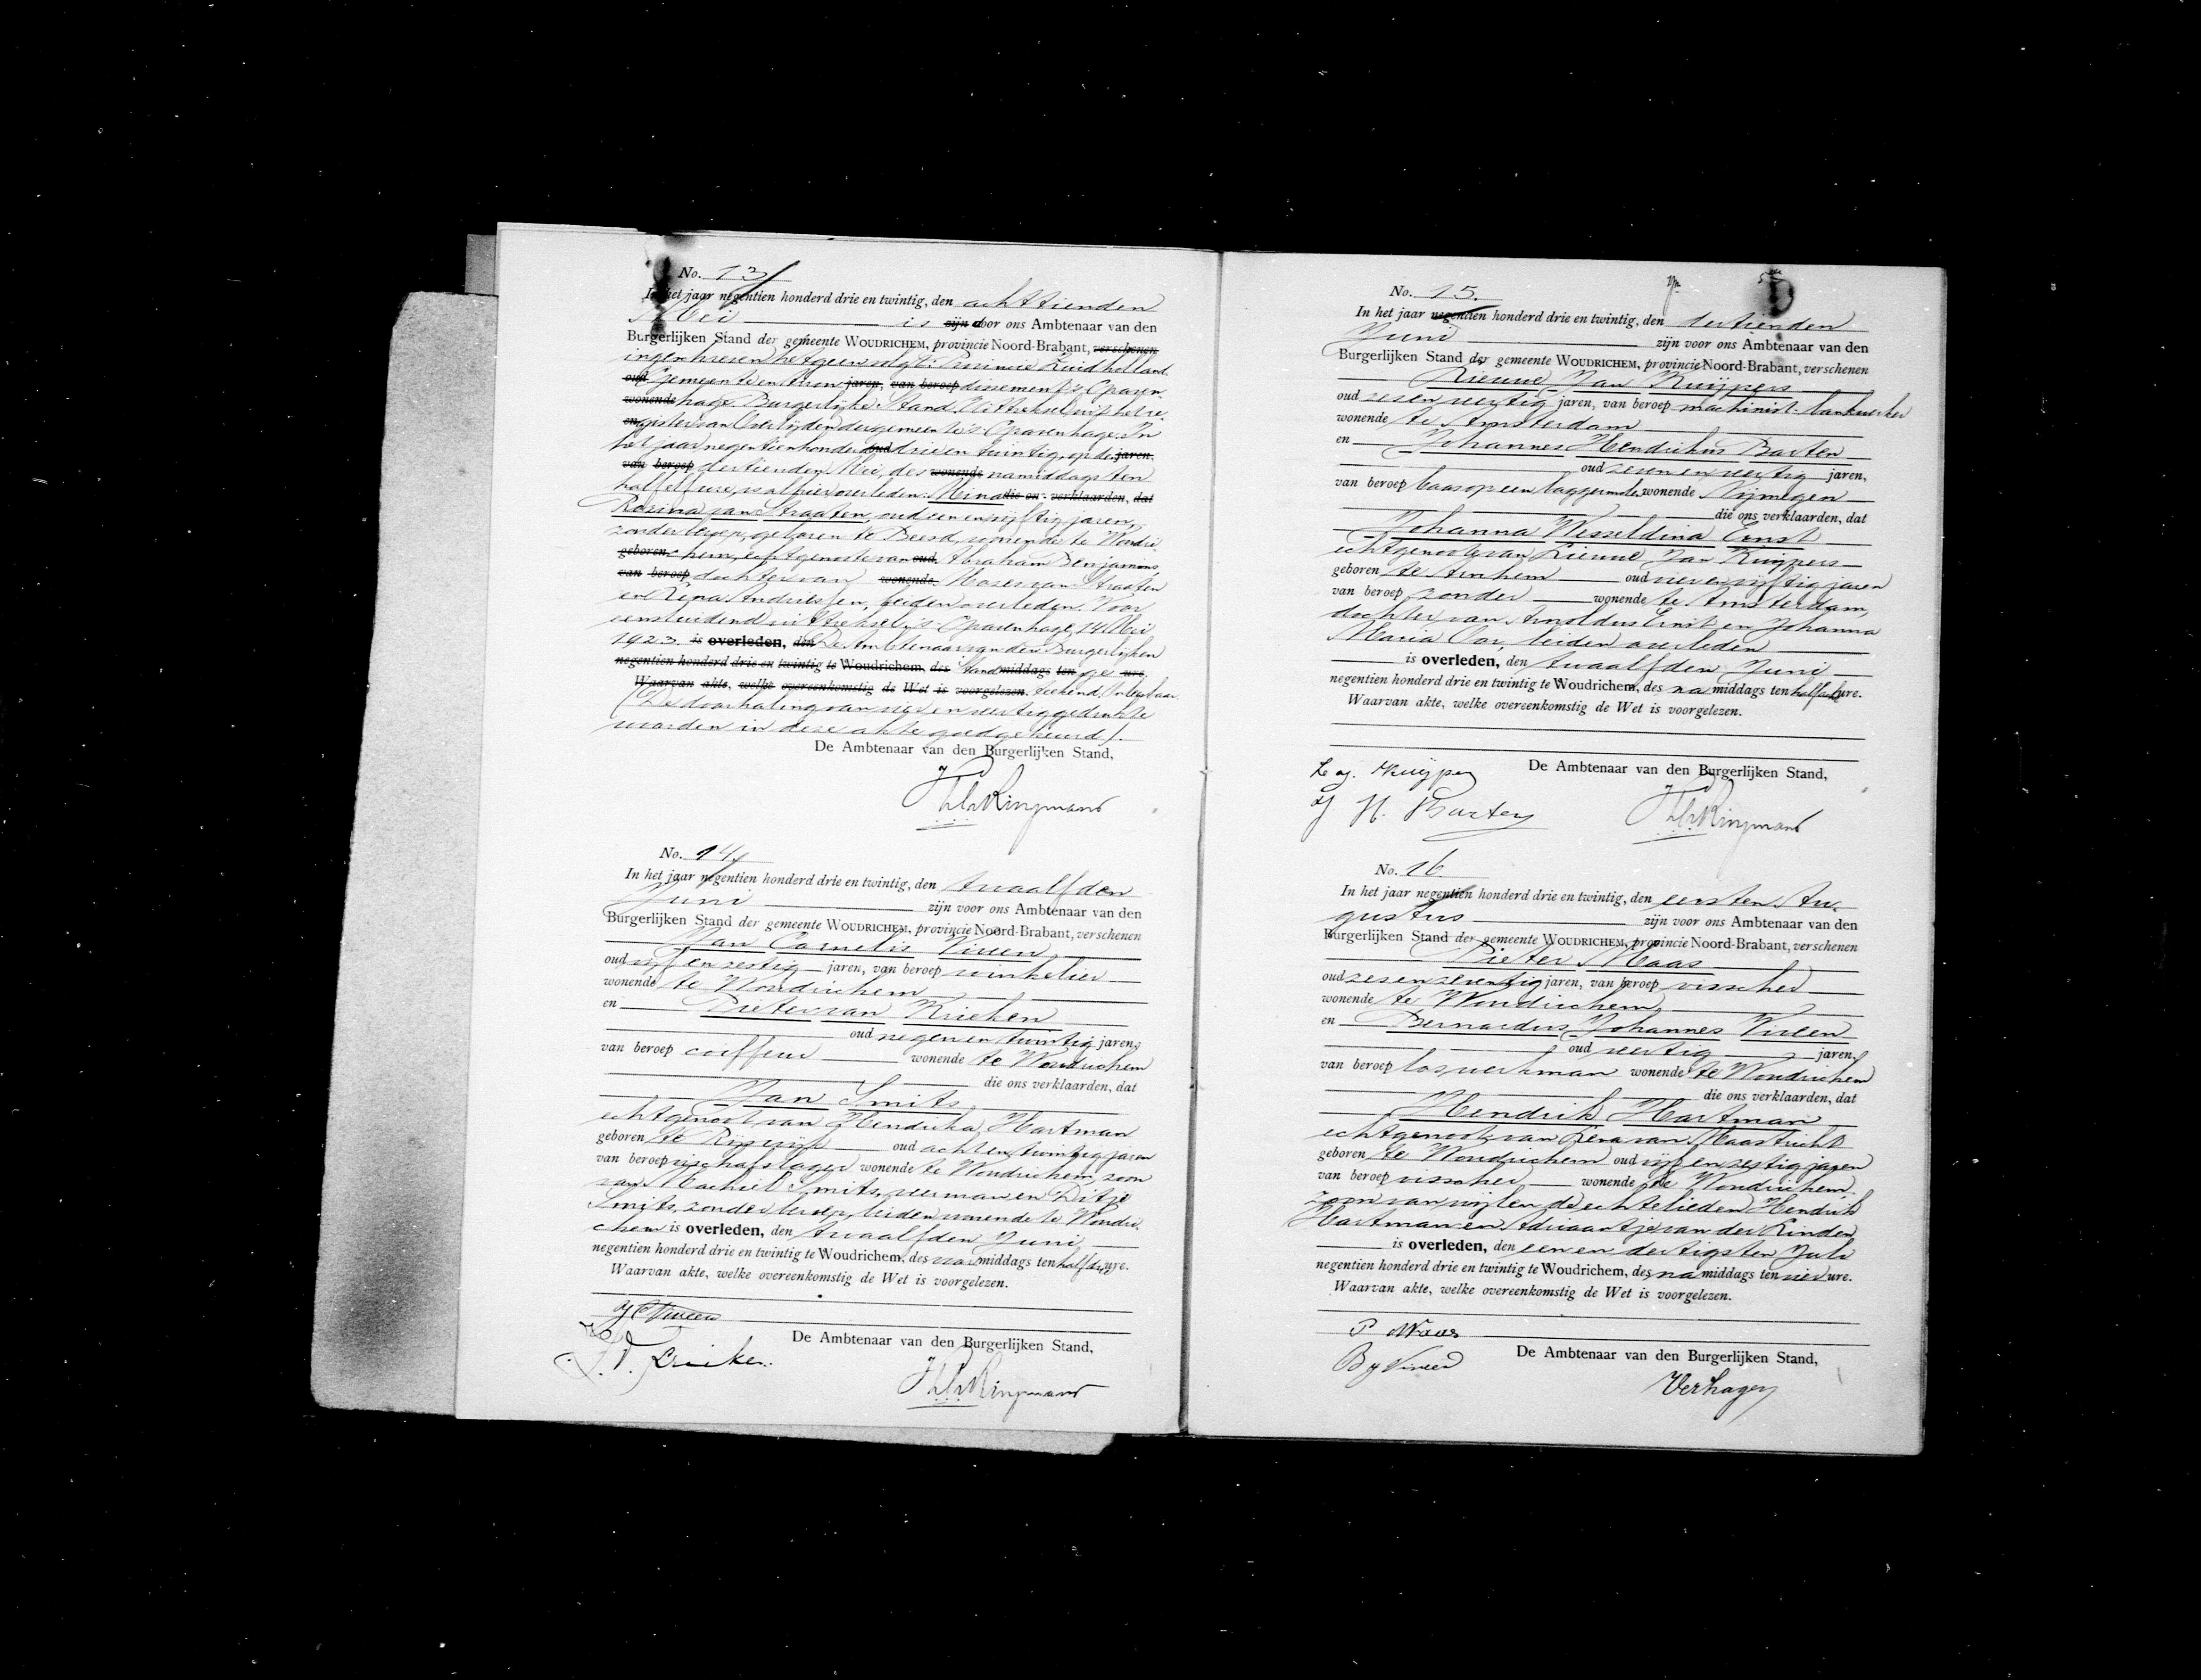 No. 13
In het jaar negentien honderd drie en twintig, den achttienden
Mei is zijn door ons Ambtenaar van den
Burgerlijken Stand der gemeente WOUDRICHEM, provincie Noord-Brabant, verschenen
ingeschreven hetgeen volgt: Provincie Zuidholland.
oud Gemeente en Arron jaren, van beroep dissement 's Graven
wonende hage. Burgerlijke Stand. Uittreksel uit het re
en gister van Overlijden der gemeente 's Gravenhage. In
het jaar negentienhonderd oud drie en twintig, op den jaren,
van beroep dertienden Mei, des wonende namiddags ten
half elf ure, is alhier overleden: Mina die ons verklaarden, dat
Rosina van Straaten, oud een en vijftig jaren,
zonder beroep, geboren te Beesd, wonende te Woudri
geboren chem, echtgenoote van oud Abraham Benjamins,
van beroep dochter van wonende Mozes van Straaten
en Lena Andriessen, beiden overleden. Voor
eensluidend uittreksel, 's Gravenhage, 14 Mei
1923. is overleden, den De Ambtenaar van den Burgerlijken
negentien honderd drie en twintig te Woudrichem, des Stand middags ten ge ure.
Waarvan akte, welke overeenkomstig de Wet is voorgelezen. teekend
(De doorhaling van vier en veertig gedrukte
woorden in deze akte goedgekeurd).
De Ambtenaar van den Burgerlijken Stand,
No. 14
In het jaar negentien honderd drie en twintig, den twaalfden
Juni zijn voor ons Ambtenaar van den
Burgerlijken Stand der gemeente WOUDRICHEM, provincie Noord-Brabant, verschenen
Jan Cornelis Vireen
oud vijf en zestig jaren, van beroep winkelier
wonende te Woudrichem
en Pieter van Krieken
oud negen en twintig jaren,
van beroep coiffeur wonende te Woudrichem
die ons verklaarden, dat
Jan Smits
echtgenoot van Hendrika Hartman
geboren te Rijswijk oud acht en twintig jaren
van beroep vischafslager wonende te Woudrichem, zoon
van Machiel Smits, veerman en Ditje
Smits, zonder beroep, beiden wonende te Woudri
chem is overleden, den twaalfden Juni
negentien honderd drie en twintig te Woudrichem, des voormiddags ten half ure.
Waarvan akte, welke overeenkomstig de Wet is voorgelezen.
J C Vireen
De Ambtenaar van den Burgerlijken Stand,
v. Krieken.
No. 15.
In het jaar negentien honderd drie en twintig, den dertienden
Juni zijn voor ons Ambtenaar van den
Burgerlijken Stand der gemeente WOUDRICHEM, provincie Noord-Brabant, verschenen
Lieuwe Jan Kuijpers
oud zeven veertig jaren, van beroep machinist-bankwerker
wonende te Amsterdam
en Johannes Hendrikus Barten
oud zeven en veertig jaren,
van beroep baas op een baggermolen wonende Nijmegen
die ons verklaarden, dat
Johanna Wesseldina Ernst
echtgenoote van Lieuwe Jan Kuijpers
geboren te Arnhem oud vier en vijftig jaren
van beroep zonder wonende te Amsterdam,
dochter van Arnoldus Ernst en Johanna
Maria Oor, beiden overleden
is overleden, den twaalfden Juni
negentien honderd drie en twintig te Woudrichem, des na middags ten half ure.
Waarvan akte, welke overeenkomstig de Wet is voorgelezen.
De Ambtenaar van den Burgerlijken Stand,
J. H. Barten
No. 16
In het jaar negentien honderd drie en twintig, den eersten Au
gustus zijn voor ons Ambtenaar van den
Burgerlijken Stand der gemeente WOUDRICHEM, provincie Noord-Brabant, verschenen
Pieter Maas
oud zes en zeventig jaren, van beroep visscher
wonende te Woudrichem
en Bernardus Johannes Vireen
oud veertig jaren,
van beroep loswerkman wonende te Woudrichem
die ons verklaarden, dat
Hendrik Hartman
echtgenoot van Lena van Maastricht
geboren te Woudrichem oud vijf en zestig jaren
van beroep visscher wonende te Woudrichem
zoon van wijlen de echtelieden Hendrik
Hartman en Adriaantje van der Linden
is overleden, den een en dertigsten Juli
negentien honderd drie en twintig te Woudrichem, des na middags ten vier ure.
Waarvan akte, welke overeenkomstig de Wet is voorgelezen.
P Maas
De Ambtenaar van den Burgerlijken Stand,
B J Vireen
Verhagen